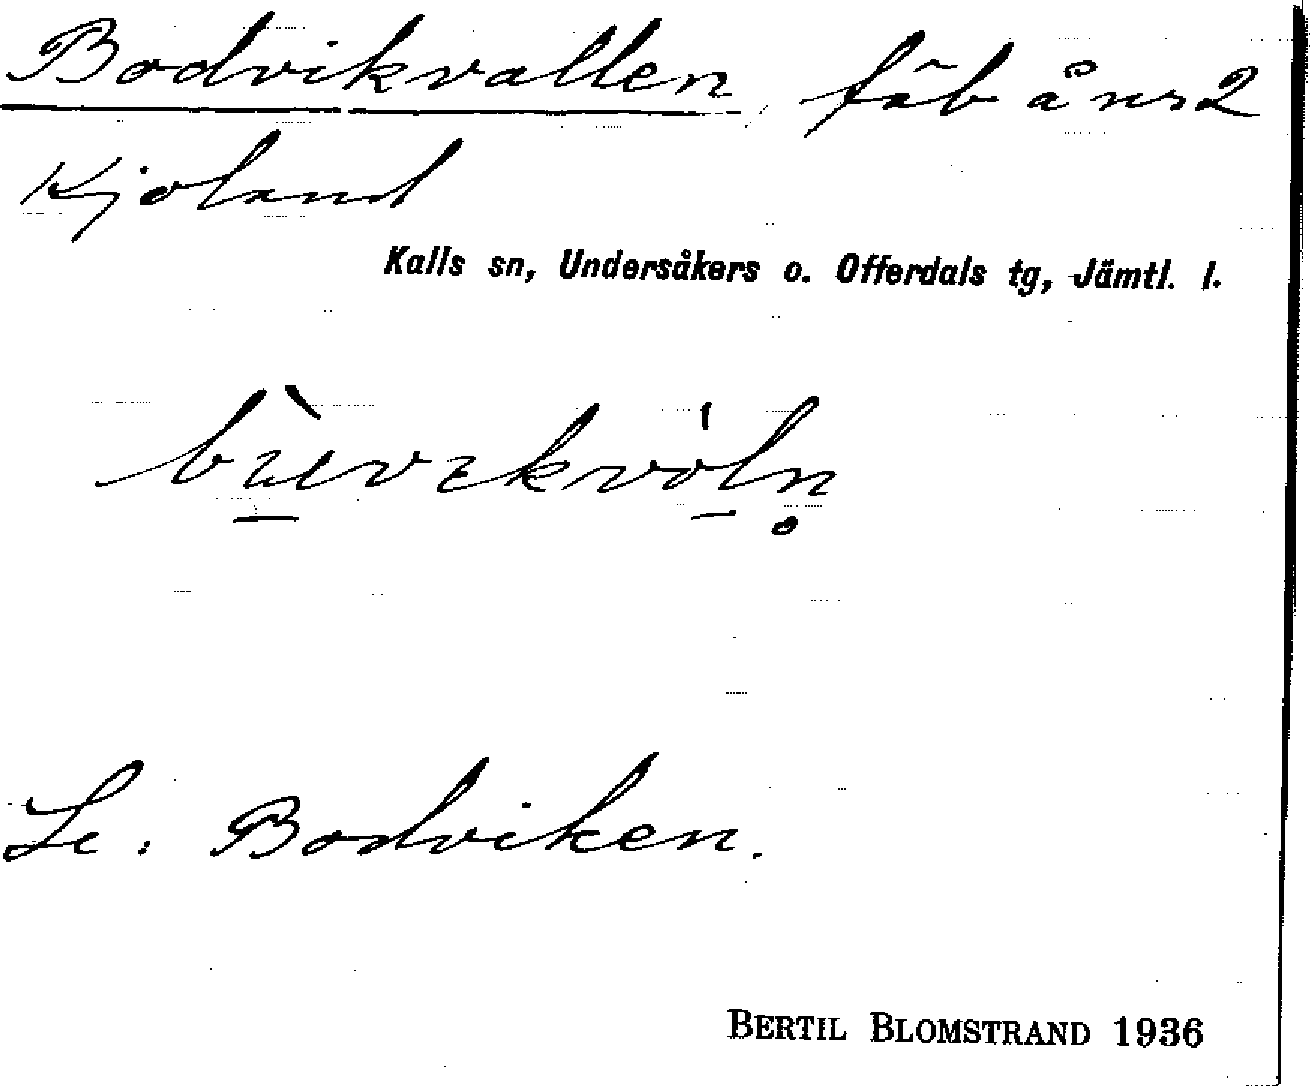 Bodvikvallen fäb å nr 2
Kjoland
Kalls sn, Undersåkers o. Offerdals tg, Jämtl. l.
Se: Bodviken.
BERTIL BLOMSTRAND 1936